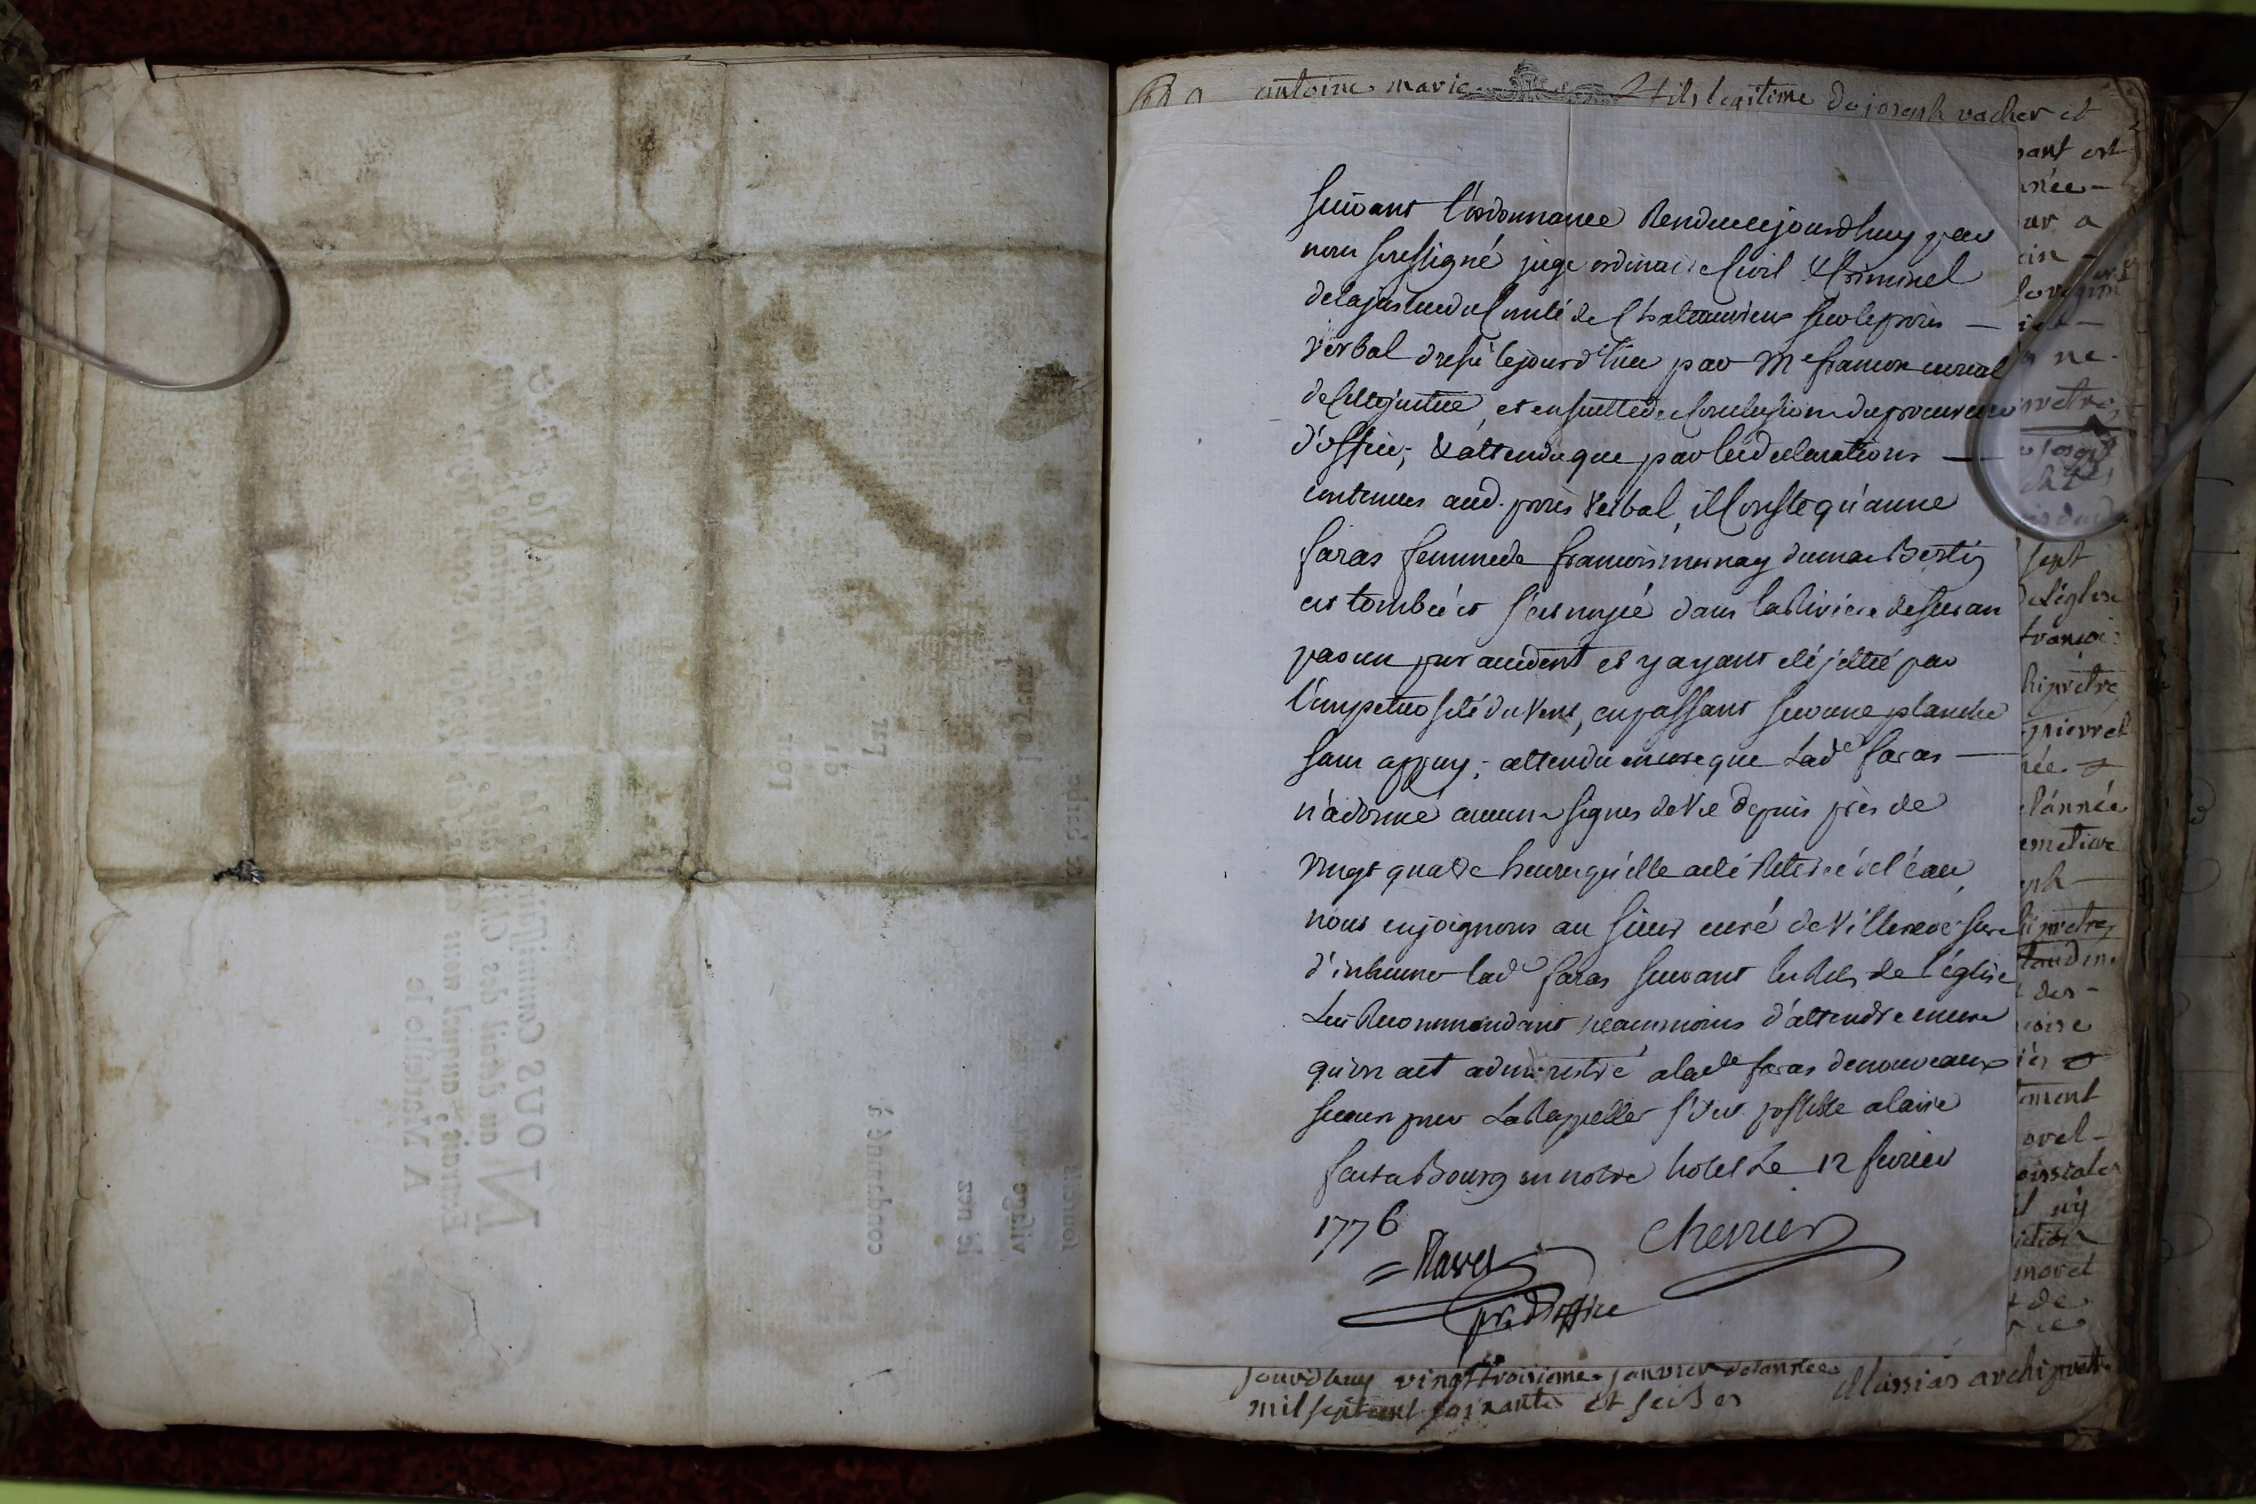 antoine marie fils legitime de joseph vacher et
Suivant l'ordonnance Rendue cejourdhuy par
nous soussigné juge ordinaire Civil & Criminel
de la justice du Comté de Chateauvieux sur le procès
verbal dressé cejourd'huy par Me francon curial
de cette justice, et ensuitte des conclusions du procureur
d'office; & attendu que par les declarations
contenues aud. procès verbal, il conste qu'anne
faras femme de francois mornay du mas Bertin
est tombée et s'est noyée dans la Riviere de suran
par un pur accident et y ayant eté jettée par
l'impetuosité du vent, en passant sur une planche
sans appuy; attendu encore que Lade faras
n'a donné aucuns signes de vie depuis près de
vingt quatre heures qu'elle a eté Retirée de l'eau,
nous enjoignons au sieur curé de Villereversure
d'inhumer lade faras suivant les Rits de l'église
Lui Recommandant neanmoins d'attendre encore
qu'on ait administré a lade faras de nouveaux
secours pour La Rappeller s'il est possible a la vie
fait a Bourg en notre hotel Le 12 fevrier
1776
Ravet
Chevrier
pr. d'office
jourdhuy vingttroisieme janvier de lannée
mil septcent soixante et seize
Massias archipretre
pant est
née
ar a
sept
de léglise
françoi
hiprêtre
pierre
lannée
emetiere
iprêtre
des
oment
n'y
moret
de
Nous Commissaire
au détail des
A Marseille le
village
le nez
conduire à